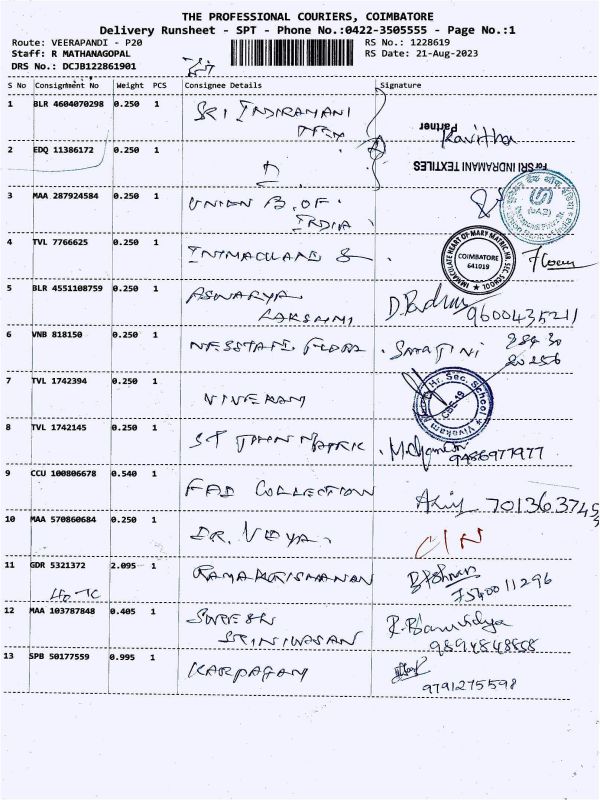 THE PROFESSIONAL COURIERS, COIMBATORE
Delivery Runsheet - SPT - Phone No.:0422-3505555 - Page No.:1
Route: VEERAPANDI - P20 RS No.: 1228619
Staff: R MATHANAGOPAL RS Date: 21-Aug-2023
DRS No.: DCJB122861901
S No Consignment No Weight PCS Consignee Details Signature
1 BLR 4604070298 0.250 1 SRI INDIRAMANI
Partner
Kavitha
2 EDQ 11386172 0.250 1
For SRI INDRAMANI TEXTILES
3 MAA 287924584 0.250 1 UNION B.OF
INDIA
4 TVL 7766625 0.250 1 INIMACULANE S
IMMACULATE HEART OF MARY MATRIC. HR. SEC. SCHOOL
COIMBATORE
641019
5 BLR 4551108759 0.250 1 ASWARYA
LAKSHMI
9600435211
6 VNB 818150 0.250 1
7 TVL 1742394 0.250 1 VIVEKAM
Vivekam Hr. Sec. School
CBE-19
8 TVL 1742145 0.250 1 ST JOHN MATRIC
9486977977
9 CCU 100806678 0.540 1 FAB COLLECTION
10 MAA 570860684 0.250 1 DR. VIDYA.
11 GDR 5321372 2.095 1 RAMAKRISHANAN
7540011296
12 MAA 103787848 0.405 1 SURESH
SRINIWASAN
R. Banuvidya
9894848868
13 SPB 50177559 0.995 1 KARPAGAM
9791275598